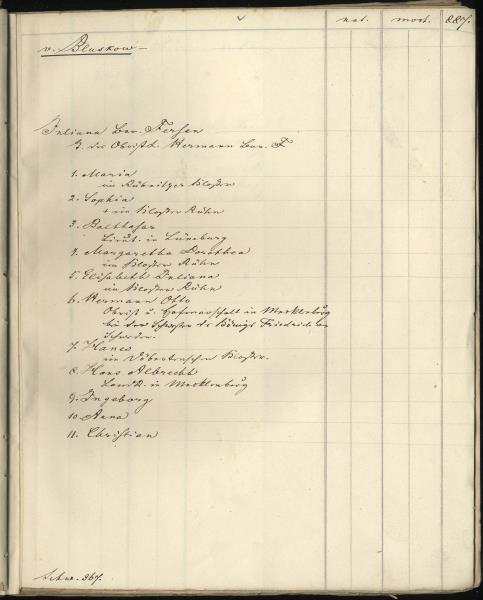 nat. mort. 887.
v. Bluskow –
Juliana Bar. Fersen
T. des Obristl. Hermann Bar. F
1. Maria
im Ribnitzer Kloster
2. Sophia
+ im Kloster Rühn
3. Balthasar
Lieut. in Lüneburg
4. Margaretha Dorothea
im Kloster Rühn
5. Elisabeth Juliana
im Kloster Rühn
6. Hermann Otto
Obrist u. Hofmarschall in Mecklenburg
bei der Schwester des Königs Friedrich von
Schweden.
7. Hanes
im Dobertinschen Kloster.
8. Hans Albrecht
Landr. in Mecklenburg
9. Ingeborg
10. Anna
11. Christian
867.